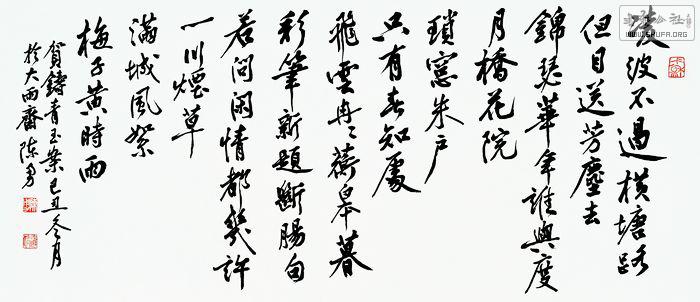 凌波不過橫塘路
但目送芳塵去
錦瑟華年誰與度
月橋花院
瑣窓朱戶
只有春知處
飛雲冉冉蘅皋暮
彩筆新題斷腸句
若問閑情都幾許
一川煙草
滿城風絮
梅子黃時雨
賀鑄青玉案己丑冬月
於大雨齋陳勇
WWW.SHUFA.ORG